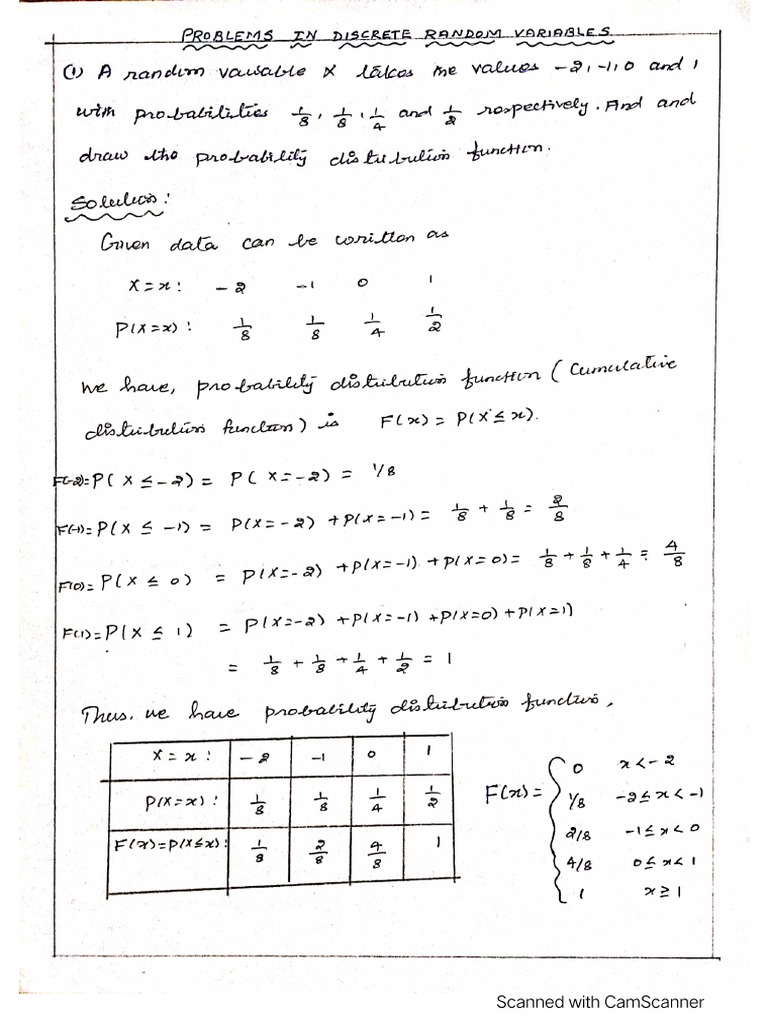 PROBLEMS IN DISCRETE RANDOM VARIABLES
(1) A random variable X takes the values -2, -1, 0 and 1
with probabilities 1/8, 1/8, 1/4 and 1/2 respectively. Find and
draw the probability distribution function.
Solution:
Given data can be written as
X=x: -2 -1 0 1
P(X=x): 1/8 1/8 1/4 1/2
We have, probability distribution function (Cumulative
distribution function) is F(x) = P(X ≤ x).
F(-2)= P(X ≤ -2) = P(X=-2) = 1/8
F(-1)= P(X ≤ -1) = P(X=-2) + P(X=-1) = 1/8 + 1/8 = 2/8
F(0)= P(X ≤ 0) = P(X=-2) + P(X=-1) + P(X=0) = 1/8 + 1/8 + 1/4 = 4/8
F(1)= P(X ≤ 1) = P(X=-2) + P(X=-1) + P(X=0) + P(X=1)
= 1/8 + 1/8 + 1/4 + 1/2 = 1
Thus, we have probability distribution function,
X = x: -2 -1 0 1
P(X=x): 1/8 1/8 1/4 1/2
F(x)=P(X≤x): 1/8 2/8 4/8 1
F(x) =
0 x < -2
1/8 -2 ≤ x < -1
2/8 -1 ≤ x < 0
4/8 0 ≤ x < 1
1 x ≥ 1
Scanned with CamScanner